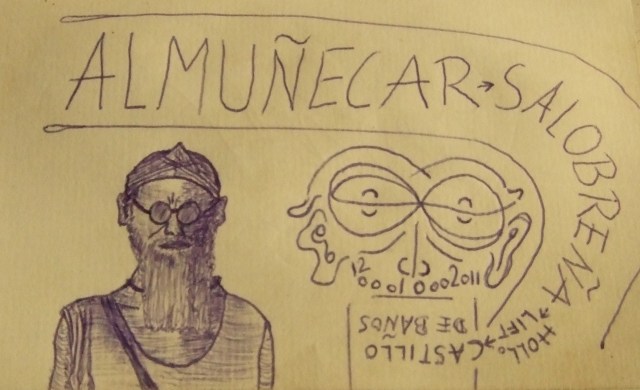 ALMUÑECAR → SALOBREÑA
→ LIFT
HOLLO → CASTILLO
DE BAÑOS
12 0001000 2011